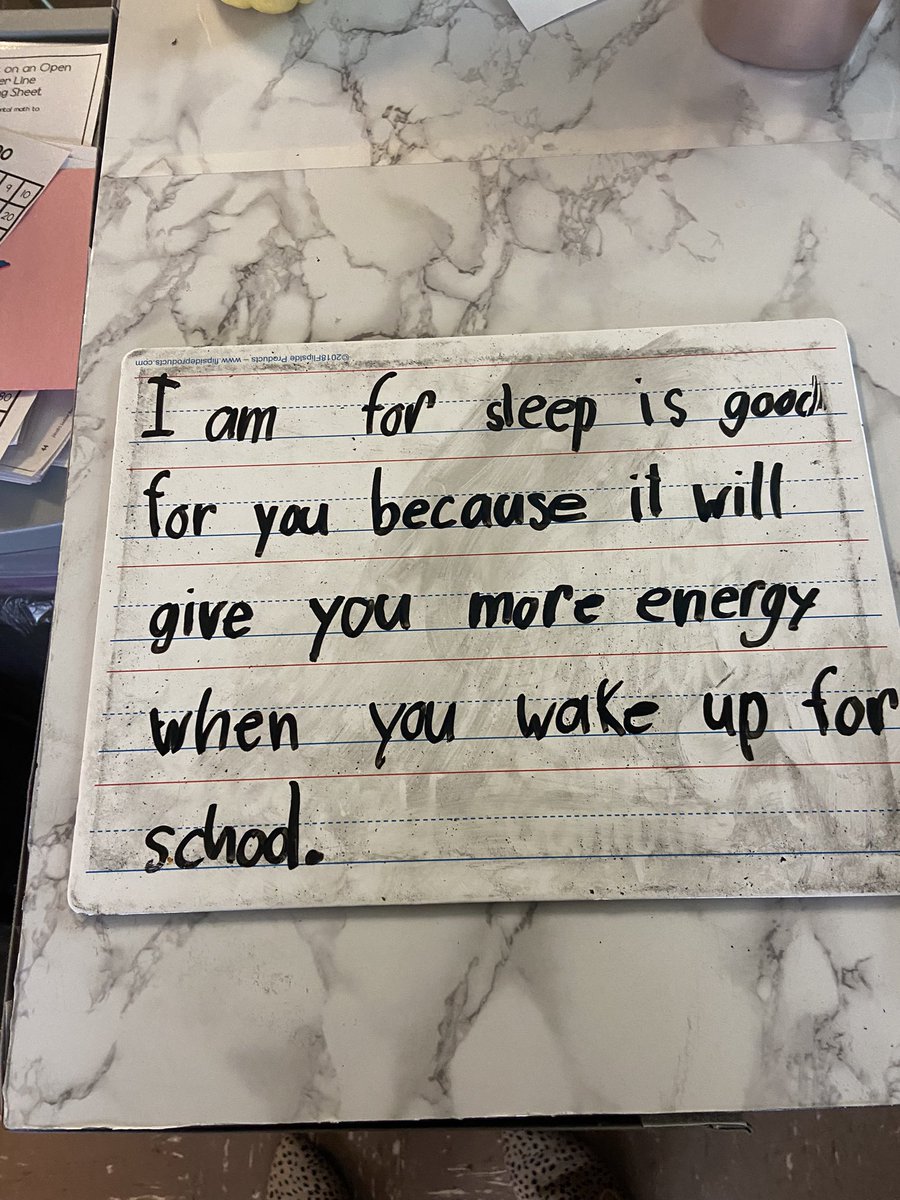 on an Open
er Line
g Sheet
ntal math to
00
9 10
20
80
44
©2018Flipside Products – www.flipsideproducts.com
I am for sleep is good
for you because it will
give you more energy
when you wake up for
school.